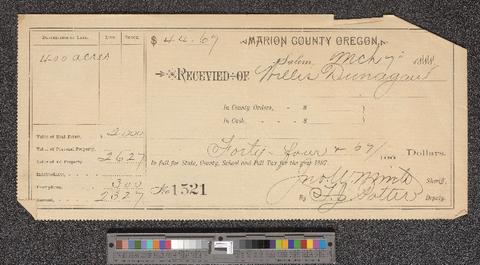 Description of Land. Lots Block.
400 acres
Value of Real Estate, $ 2,000
Value of Personal Property,
Value of all Property 2627
Indebtedness,
Exemptions, 300
Amount, 2327
$ 44.67
MARION COUNTY OREGON.
Salem, Mch 7 1888
RECEVIED OF Willis Dunagan
In County Orders, - $
In Cash, - $
Forty-four & 67/100 Dollars.
In full for State, County, School and Poll Tax for the year 1887.
No 1521
Jno W Minto Sheriff,
By Potter Deputy.